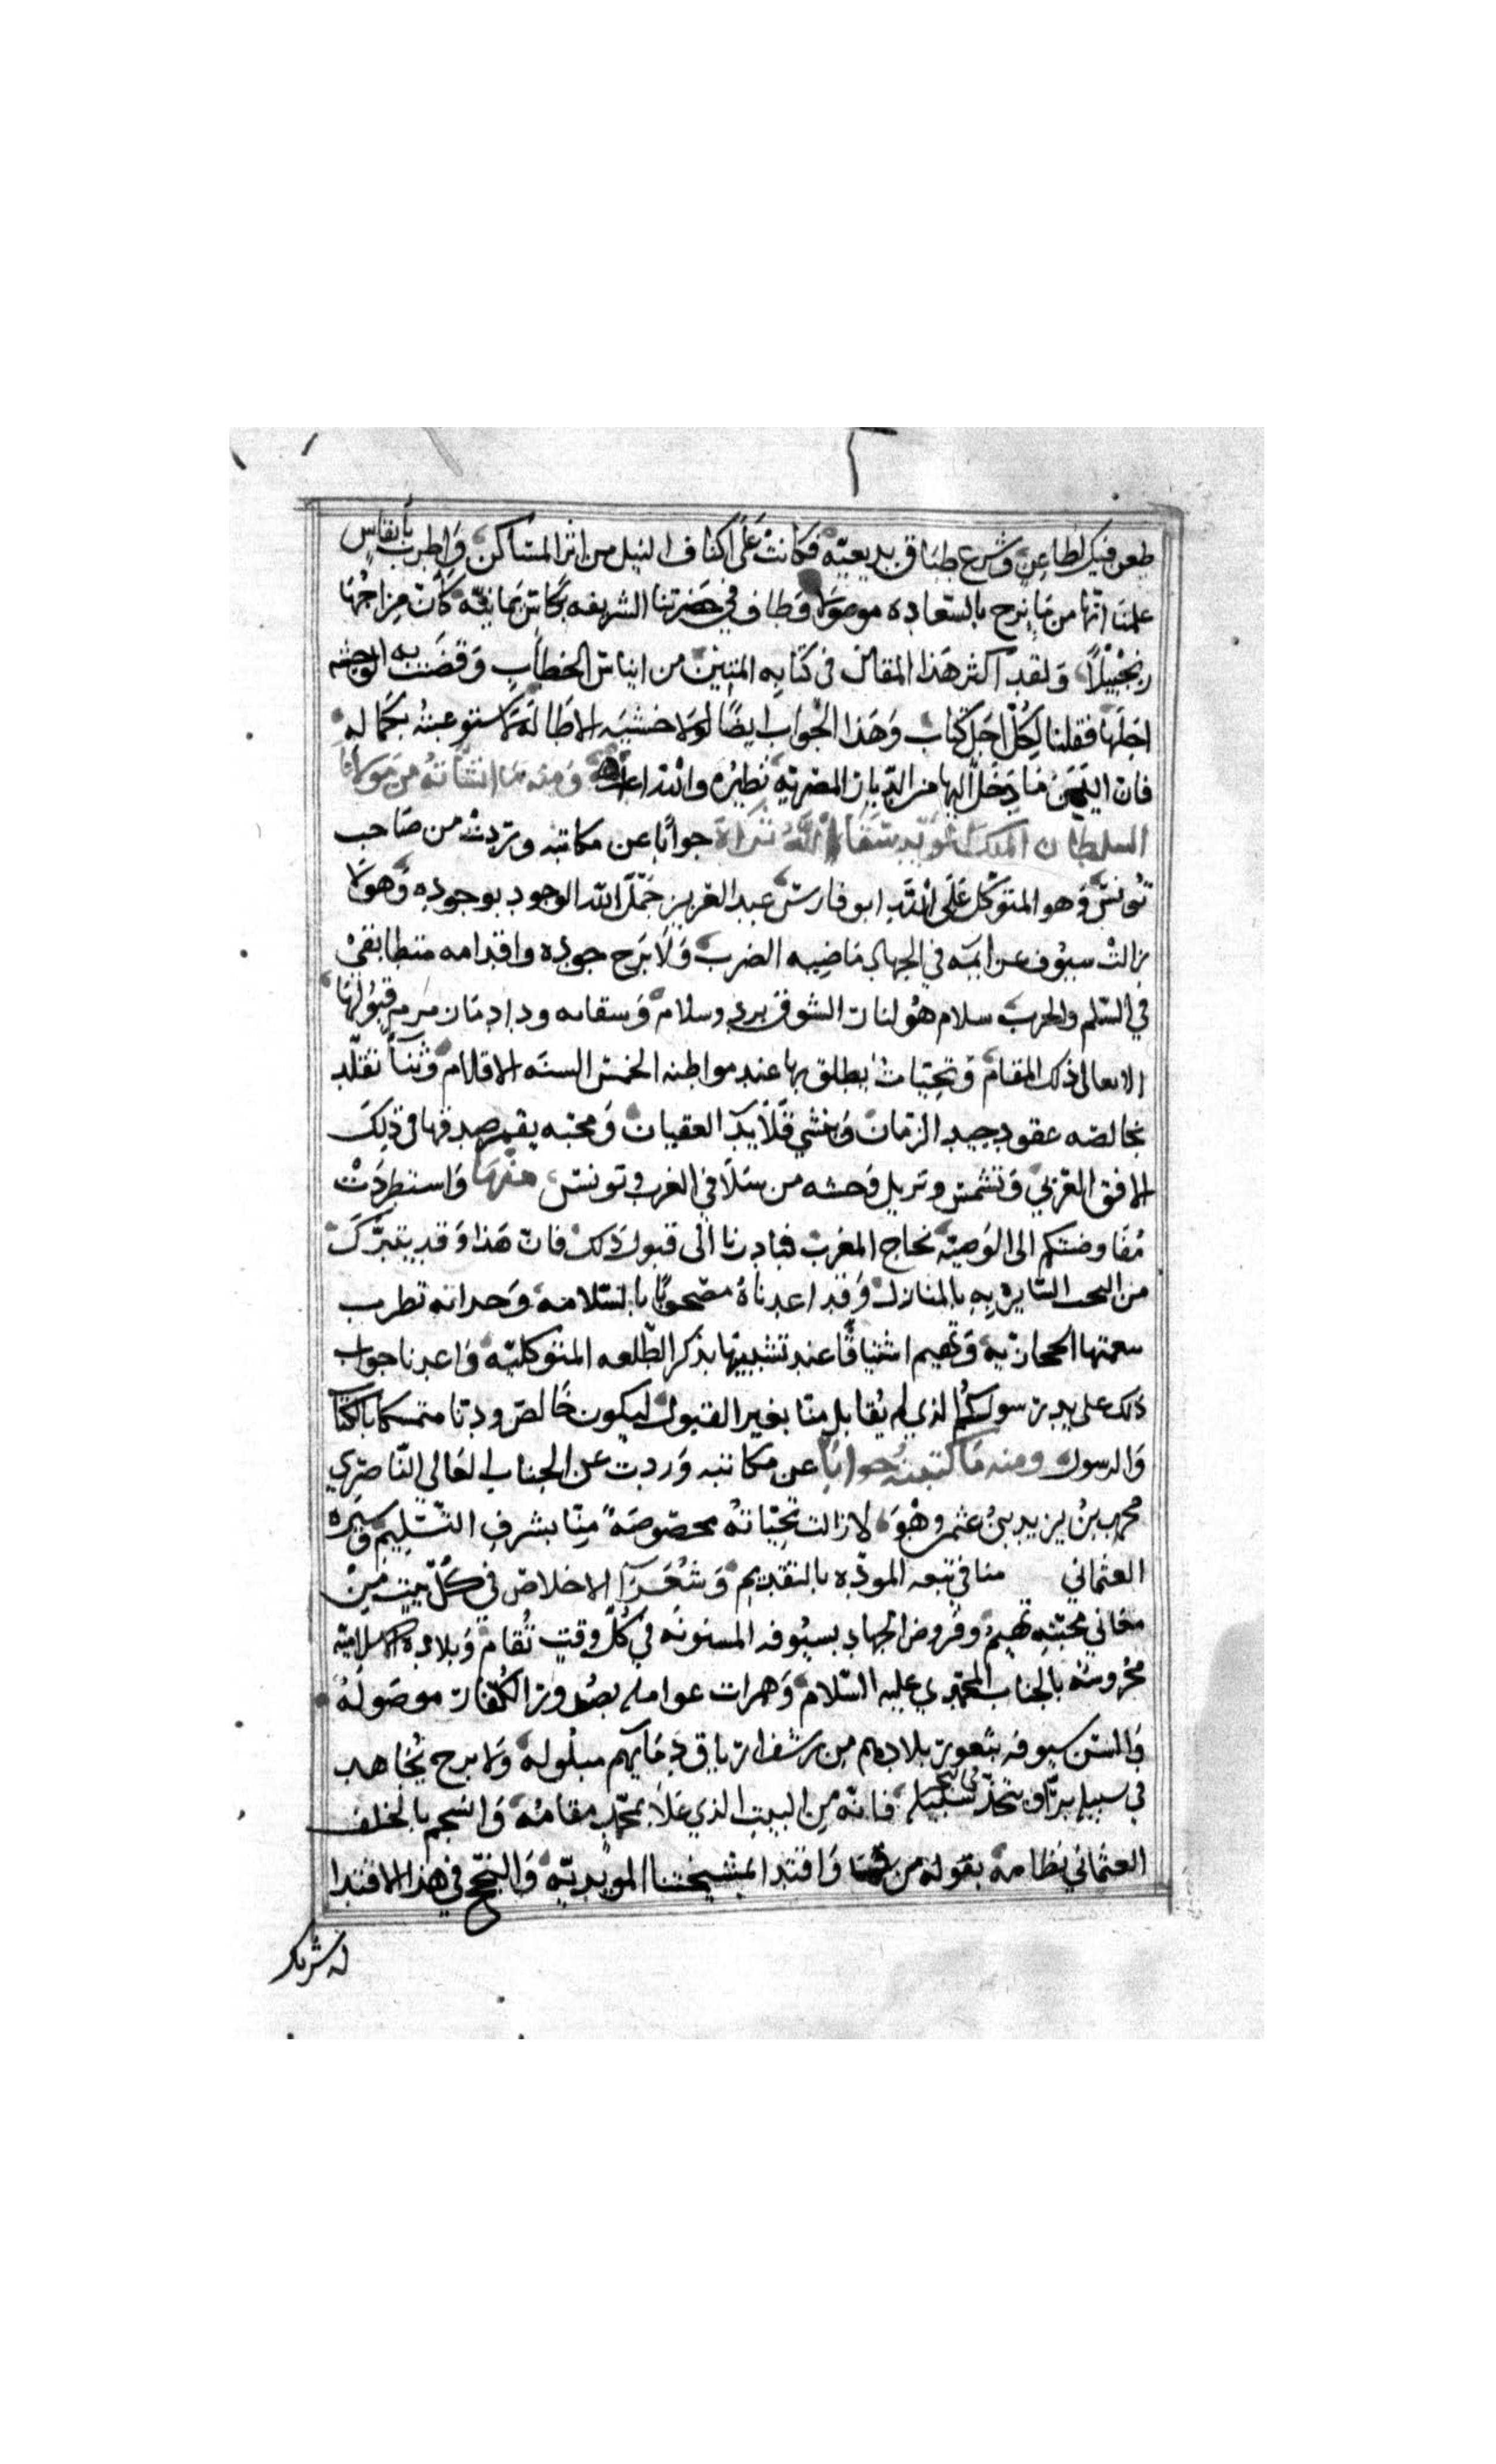 طعن فيك لطاعن وشرع طباق بديعيّه فكانت على اكناف النيل من ابر المساكن واطرب بأنفاس
علمنا انها من ما برح بالسعاده موصولا وطاف في حضرتنا الشريفه بكاس يمانيّه كان مزاجُها
زنجبيلًا ولقد اكثر هذا المقال في كتابه المتين من ايناس الخطاب وقضت به الوحشه
اجلها فقلنا لكلّ اجل كتاب وهذا الجواب ايضًا لولا خشيه الاطاله لاستوعبتهُ بكماله
فان اليمن ما دخل اليها من الديار المصريه نظيره والله اعلم ومنه ما انشأته من مولانا
السلطان الملك المؤيد سقا الله ثراه جوابًا عن مكاتبه وردت من صاحب
تونس وهو المتوكل على الله ابو فارس عبد العزيز جمّل الله الوجود بوجوده وهو لا
زالت سيوف عزايمه في الجهاد ماضيه الضرب ولا برح جوده واقدامه متطابقين
في السلم والحرب سلام هو لنار الشوق برد وسلام وداد قبولها
الا تعالى ذلك المقام وتحيات ينطلق بها عند مواطنه الخمس السنه الاقلام وثناً تقلّد
بخالصه عقود جيد الزمان وننشي قلايد العقيان ومحبه يقمر صدقها في ذلك
الافق الغربي وتشمس وتزيل وحشه من سلا في الغرب وتونس منها واستطردت
مفاوضتكم الى الوصيه بحاج المغرب فبادرنا الى قبول ذلك فان هذا وقد يتبرّك
من النجب السايره به بالمنازل وقد اعدناهُ مصحوبًا بالسلامه وحداته تطرب
سمعتها الحجازيه وتهيم اشتياقًا عند تشبيبها بذكر الطلعه المتوكليّه واعدنا جواب
ذلك على يد رسولكُم الذي لم يُقابل منّا بغير القبول ليكون خالص ودنا متمسكا بالكتاب
والرسول ومنه ما كتبتهُ جوابًا عن مكاتبه وردت عن الجناب العالي النّاصري
محمد بن يزيد بن عثمن وهو لا زالت تحيّاته مخصوصهً منّا بشرف التسليم وسيره
العثماني منا في تبعه المودّه بالتقديم وشعرا الاخلاص في كلّ بيت من
معاني محبّته تهيم وفروض الجهاد بسيوفه المسنونه في كلّ وقت تُقام وبلاده الاسلاميه
محروسه بالجناب المحمدي عليه السلام وهمرات عوامله بصدور الكفار موصوله
والسن سيوفه بثغور بلادهم من رشف ارياق دمايهم مبلوله ولا برح يجاهد
في سبيله برّا ويتخذ في البحر سبيله فانه من البيت الذي علا بمحمّد مقامهُ وانسجم بالخلف
العثماني نظامه بقوله من واقتدا بمشيختنا المويديّه والنجح في هذا الاقتدا
له شريك